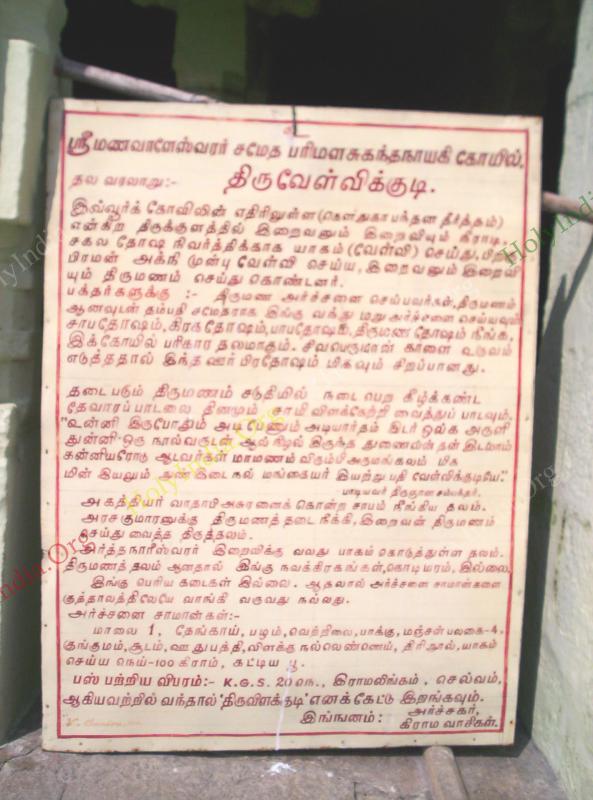 ஸ்ரீ மணவாளேஸ்வரர் சமேத பரிமளசுகந்தநாயகி கோயில்.
தல வரலாறு:- திருவேள்விக்குடி.
இவ்வூர்க் கோவிலின் எதிரிலுள்ள (கௌதுகாபந்தன தீர்த்தம்)
என்கிற திருக்குளத்தில் இறைவனும் இறைவியும் நீராடி,
சகல தோஷ நிவர்த்திக்காக யாகம் (வேள்வி) செய்து, பிர
பிரமன் அக்னி முன்பு வேள்வி செய்ய, இறைவனும் இறைவி
யும் திருமணம் செய்து கொண்டனர்.
பக்தர்களுக்கு :- திருமண அர்ச்சனை செய்பவர்கள், திருமணம்
ஆனவுடன் தம்பதி சமேதராக இங்கு வந்து மறு அர்ச்சனை செய்யவும்
சாபதோஷம், கிரகதோஷம், பாபதோஷம், திருமண தோஷம் நீங்க,
இக்கோயில் பரிகார தலமாகும். சிவபெருமான் காளை உருவம்
எடுத்ததால் இந்த ஊர் பிரதோஷம் மிகவும் சிறப்பானது.
தடை படும் திருமணம் சடுதியில் நடை பெற கீழ்க்கண்ட
தேவாரப் பாடலை தினமும் சாமி விளக்கேற்றி வைத்துப் பாடவும்.
"உன்னி இருபோதும் அடி பேணும் அடியார்தம் இடர் ஒல்க அருளி
துன்னி ஒரு நால்வருடன் ஆல் நிழல் இருந்த துணைவன் தன் இடமாம்
கன்னியரோடு ஆடவர்கள் மாமணம் விரும்பி அருமங்கலம் மிக
மின் இயலும் நுண் இடை நல் மங்கையர் இயற்று பதி வேள்விக்குடியே."
பாடியவர் திருஞான சம்பந்தர்.
அகத்தியர் வாதாபி அசுரனைக் கொன்ற சாபம் நீங்கிய தலம்.
அரசகுமாரனுக்கு திருமணத் தடை நீக்கி, இறைவன் திருமணம்
செய்து வைத்த திருத்தலம்.
அர்த்தநாரீஸ்வரர் இறைவிக்கு வலது பாகம் கொடுத்துள்ள தலம்.
திருமணத் தலம் ஆனதால் இங்கு நவக்கிரகங்கள், கொடிமரம், இல்லை.
இங்கு பெரிய கடைகள் இல்லை. ஆதலால் அர்ச்சனை சாமான்களை
குத்தாலத்திலேயே வாங்கி வருவது நல்லது.
அர்ச்சனை சாமான்கள்:-
மாலை 1, தேங்காய், பழம், வெற்றிலை, பாக்கு, மஞ்சள் பலகை-4.
குங்குமம், சூடம், ஊதுபத்தி, விளக்கு நல்லெண்ணெய், திரி நூல், யாகம்
செய்ய நெய்-100 கிராம், கட்டிய பூ.
பஸ் பற்றிய விபரம்:- K.G.S. 20 எ, இராமலிங்கம், செல்வம்,
ஆகியவற்றில் வந்தால் 'திருவிளக்குடி' எனக் கேட்டு இறங்கவும்.
இங்ஙனம்: அர்ச்சகர்,
கிராம வாசிகள்.
HolyIndia.Org